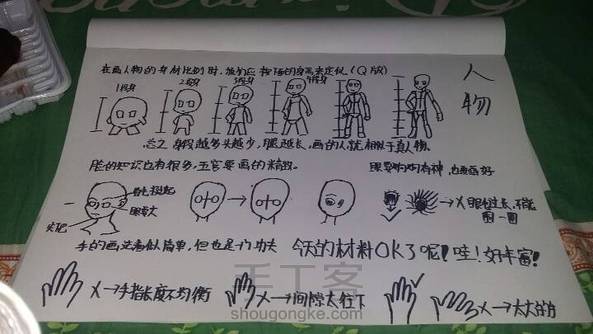 在画人物的身材比例时,我们应按照的身高来定似(Q版)
人物
1段身
2段身
3段身
4段身
总之,身段越多头越少,腿越长,画的人就相似于真人物.
脸的知识也有很多,五官要画的精致.
眼要有神,也要画好
眼要大
X眼色过长,不能
圈一圈
手的画法看似简单,但也是门功夫
今天的材料OK了呢!哇!好丰富!
X→手指长度不均衡
X→间隙太往下
X→太大的
手工客
shougongke.com